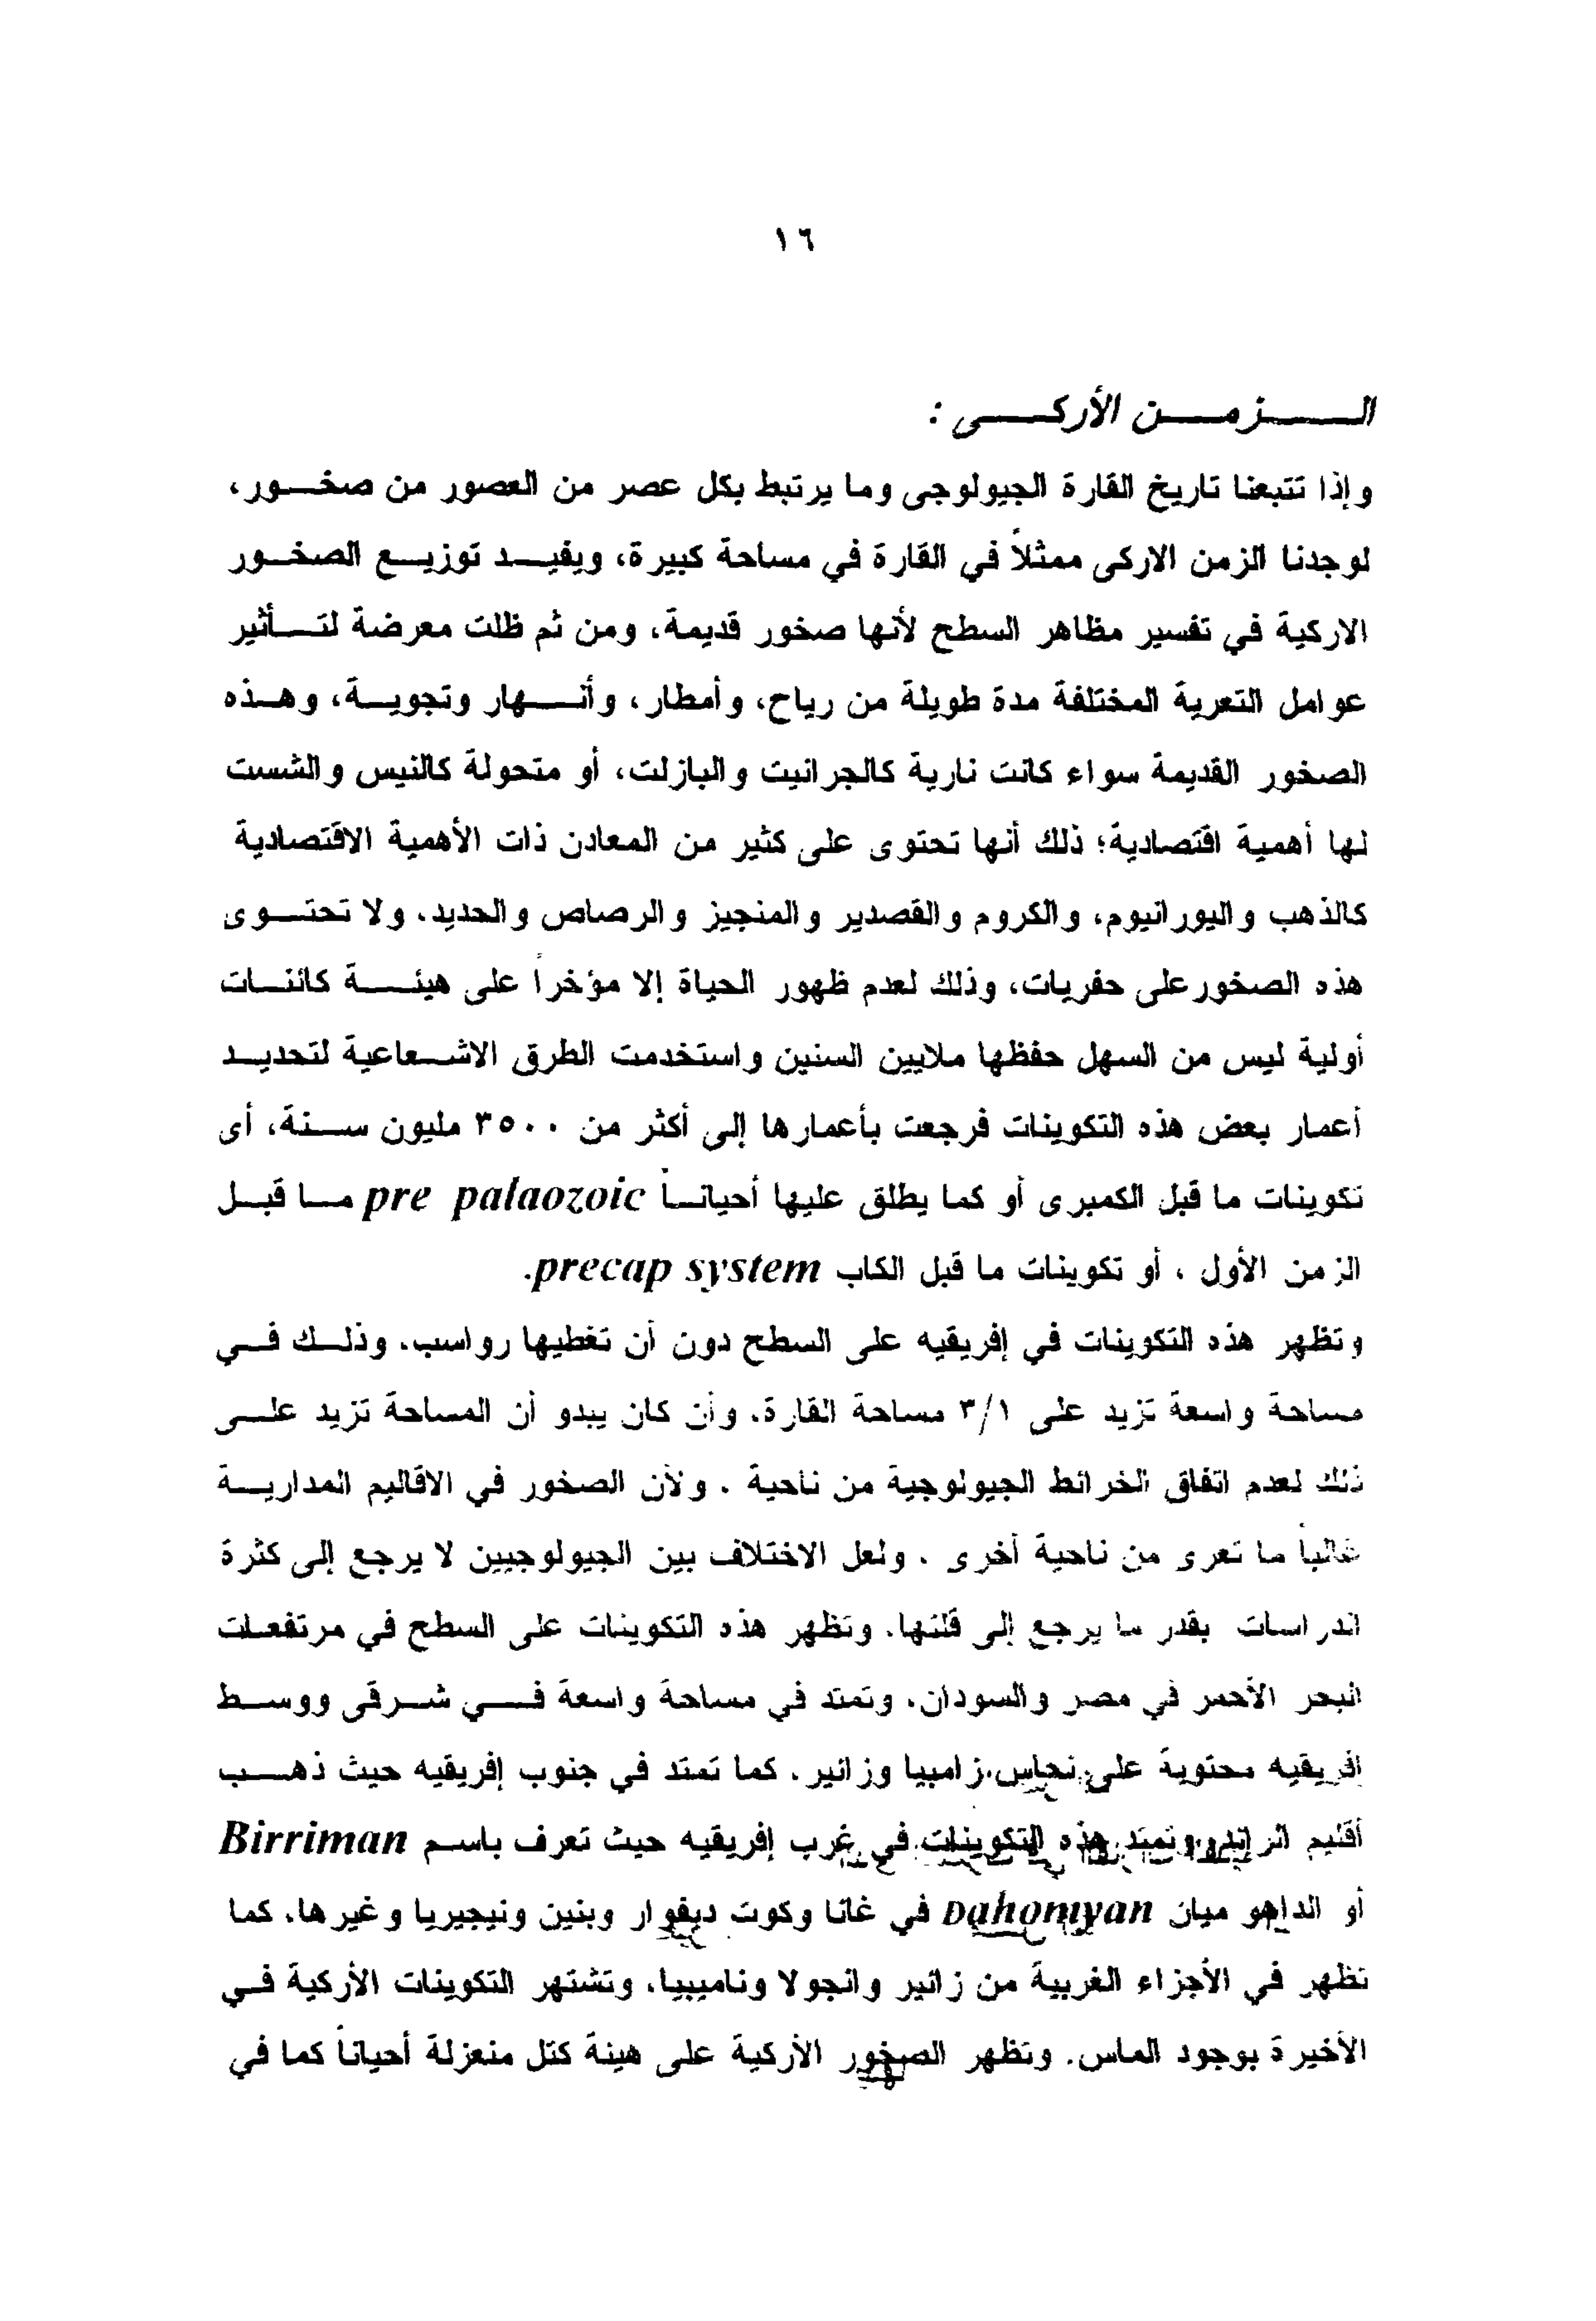 ١٦
الزمن الأركى :
وإذا تتبعنا تاريخ القارة الجيولوجى وما يرتبط بكل عصر من العصور من صخور،
لوجدنا الزمن الاركى ممثلاً في القارة في مساحة كبيرة، ويفيد توزيع الصخور
الاركية في تفسير مظاهر السطح لأنها صخور قديمة، ومن ثم ظلت معرضة لتأثير
عوامل التعرية المختلفة مدة طويلة من رياح، وأمطار، وأنهار وتجوية، وهذه
الصخور القديمة سواء كانت نارية كالجرانيت والبازلت، أو متحولة كالنيس والشست
لها أهمية اقتصادية؛ ذلك أنها تحتوى على كثير من المعادن ذات الأهمية الاقتصادية
كالذهب واليورانيوم، والكروم والقصدير والمنجيز والرصاص والحديد، ولا تحتوى
هذه الصخور على حفريات، وذلك لعدم ظهور الحياة إلا مؤخراً على هيئة كائنات
أولية ليس من السهل حفظها ملايين السنين واستخدمت الطرق الاشعاعية لتحديد
أعمار بعض هذه التكوينات فرجعت بأعمارها إلى أكثر من ٣٥٠٠ مليون سنة، أى
تكوينات ما قبل الكمبرى أو كما يطلق عليها أحياناً pre palaozoic ما قبل
الزمن الأول ، أو تكوينات ما قبل الكاب precap system.
وتظهر هذه التكوينات في إفريقيه على السطح دون أن تغطيها رواسب، وذلك في
مساحة واسعة تزيد على ٣/١ مساحة القارة، وأن كان يبدو أن المساحة تزيد على
ذلك لعدم اتفاق الخرائط الجيولوجية من ناحية ، ولأن الصخور في الاقاليم المدارية
غالباً ما تعرى من ناحية أخرى ، ولعل الاختلاف بين الجيولوجيين لا يرجع إلى كثرة
الدراسات بقدر ما يرجع إلى قلتها، وتظهر هذه التكوينات على السطح في مرتفعات
البحر الأحمر في مصر والسودان، وتمتد في مساحة واسعة في شرقى ووسط
افريقيه محتوية على نحاس زامبيا وزائير، كما تمتد في جنوب إفريقيه حيث ذهب
أقليم الراند، وتمتد هذه التكوينات في غرب إفريقيه حيث تعرف باسم Birriman
أو الداهو ميان Dahomyan في غانا وكوت ديفوار وبنين ونيجيريا وغيرها، كما
تظهر في الأجزاء الغربية من زائير وانجولا وناميبيا، وتشتهر التكوينات الأركية في
الأخيرة بوجود الماس. وتظهر الصخور الأركية على هيئة كتل منعزلة أحياناً كما في